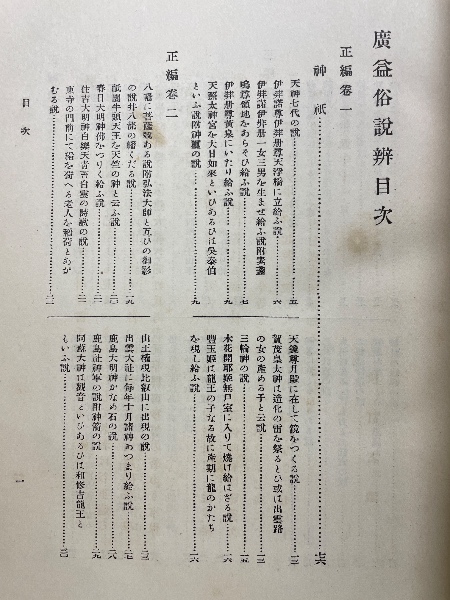 廣益俗説辨目次
正編卷一
神祇……一六
天神七代の説……五
伊弉諾尊伊弉册尊天浮橋に立給ふ説……六
伊弉諾伊弉册一女三男を生ませ給ふ説附素盞
嗚尊領地をあらそひ給ふ説……七
伊弉册尊黄泉にいたり給ふ説……九
天照太神宮を大日如來といひあるひは吳泰伯
といふ説附神璽の説……九
天鏡尊月殿に在して鏡をつくる説……一三
賀茂皇太神は造化の雷を祭るとひ或は出雲路
の女の産める子と云説……一三
三輪神の説……一五
木花開耶姬無戸室に入りて燒け給はざる説……一六
豐玉姬は龍王の子なる故に産期に龍のかたち
を現し給ふ説……一六
正編卷二
八幡に菩薩號ある説附弘法大師と互ひの御影
の説幷八部の幡くだる説……一九
祇園牛頭天王を天竺の神と云ふ説
春日大明神佛をつりくり給ふ説
住吉大明神白樂天青苔白雲の詩歌の説
東寺の門前にて稻を荷へる老人を稻荷とあが
むる説
山王權現比叡山に出現の説
出雲大社に毎年十月諸神あつまり給ふ説……二七
鹿島大明神かなめ石の説……二八
鹿島社神軍の説附神箭の説……二九
阿蘇大神は觀音といひあるひは和修吉龍王と
もいふ説……三〇
目次
一